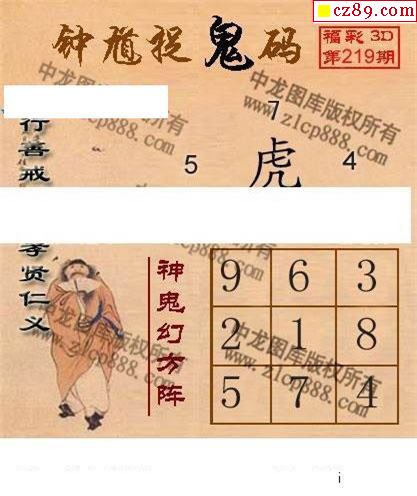 cz89.com
钟馗捉鬼码
福彩 3D
第219期
中龙图库版权所有
www.zlcp888.com
行善戒
7
5
虎
4
孝贤仁义
神鬼幻方阵
9 6 3
2 1 8
5 7 4
中龙图库版权所有
www.zlcp888.com
i